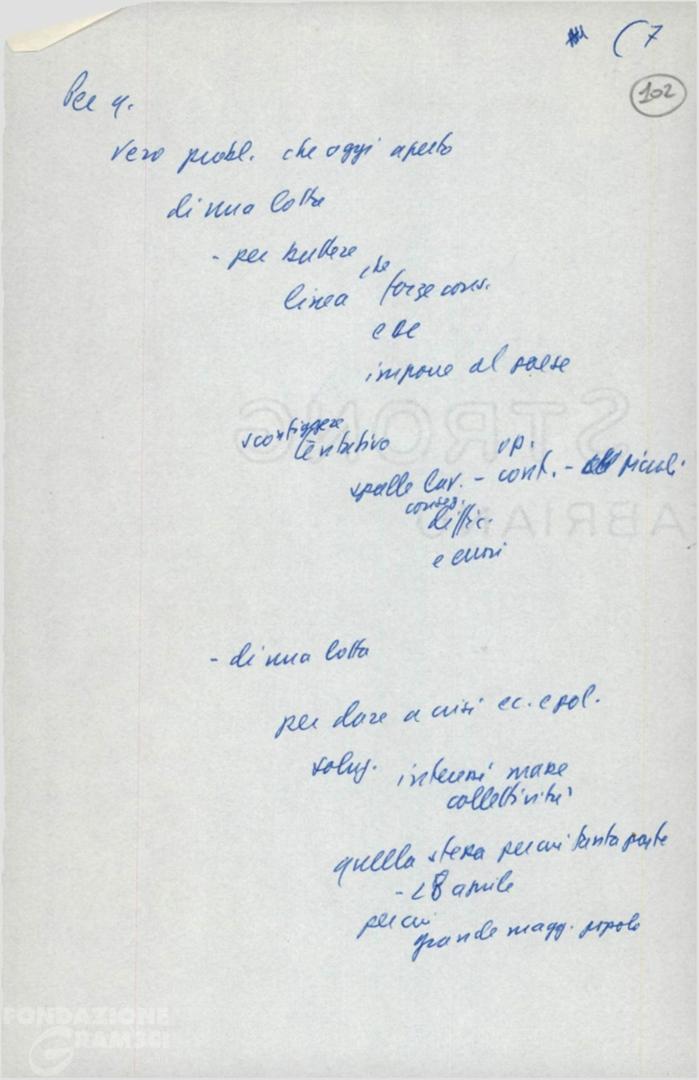 (7
102
Per q.
vero probl. che oggi aperto
di una lotta
- per battere
che
linea forze cons.
e DC
impone al paese
sconfiggere
tentativo
op.
spalle lav. - cont. - piccoli
conseg.
diffic.
e crisi
- di una lotta
per dare a crisi ec. e pol.
soluz. interessi masse
collettività
quella stessa per cui tanta parte
- 28 aprile
per cui
grande magg. popolo
STRONG
FABRIANO
FONDAZIONE
GRAMSCI